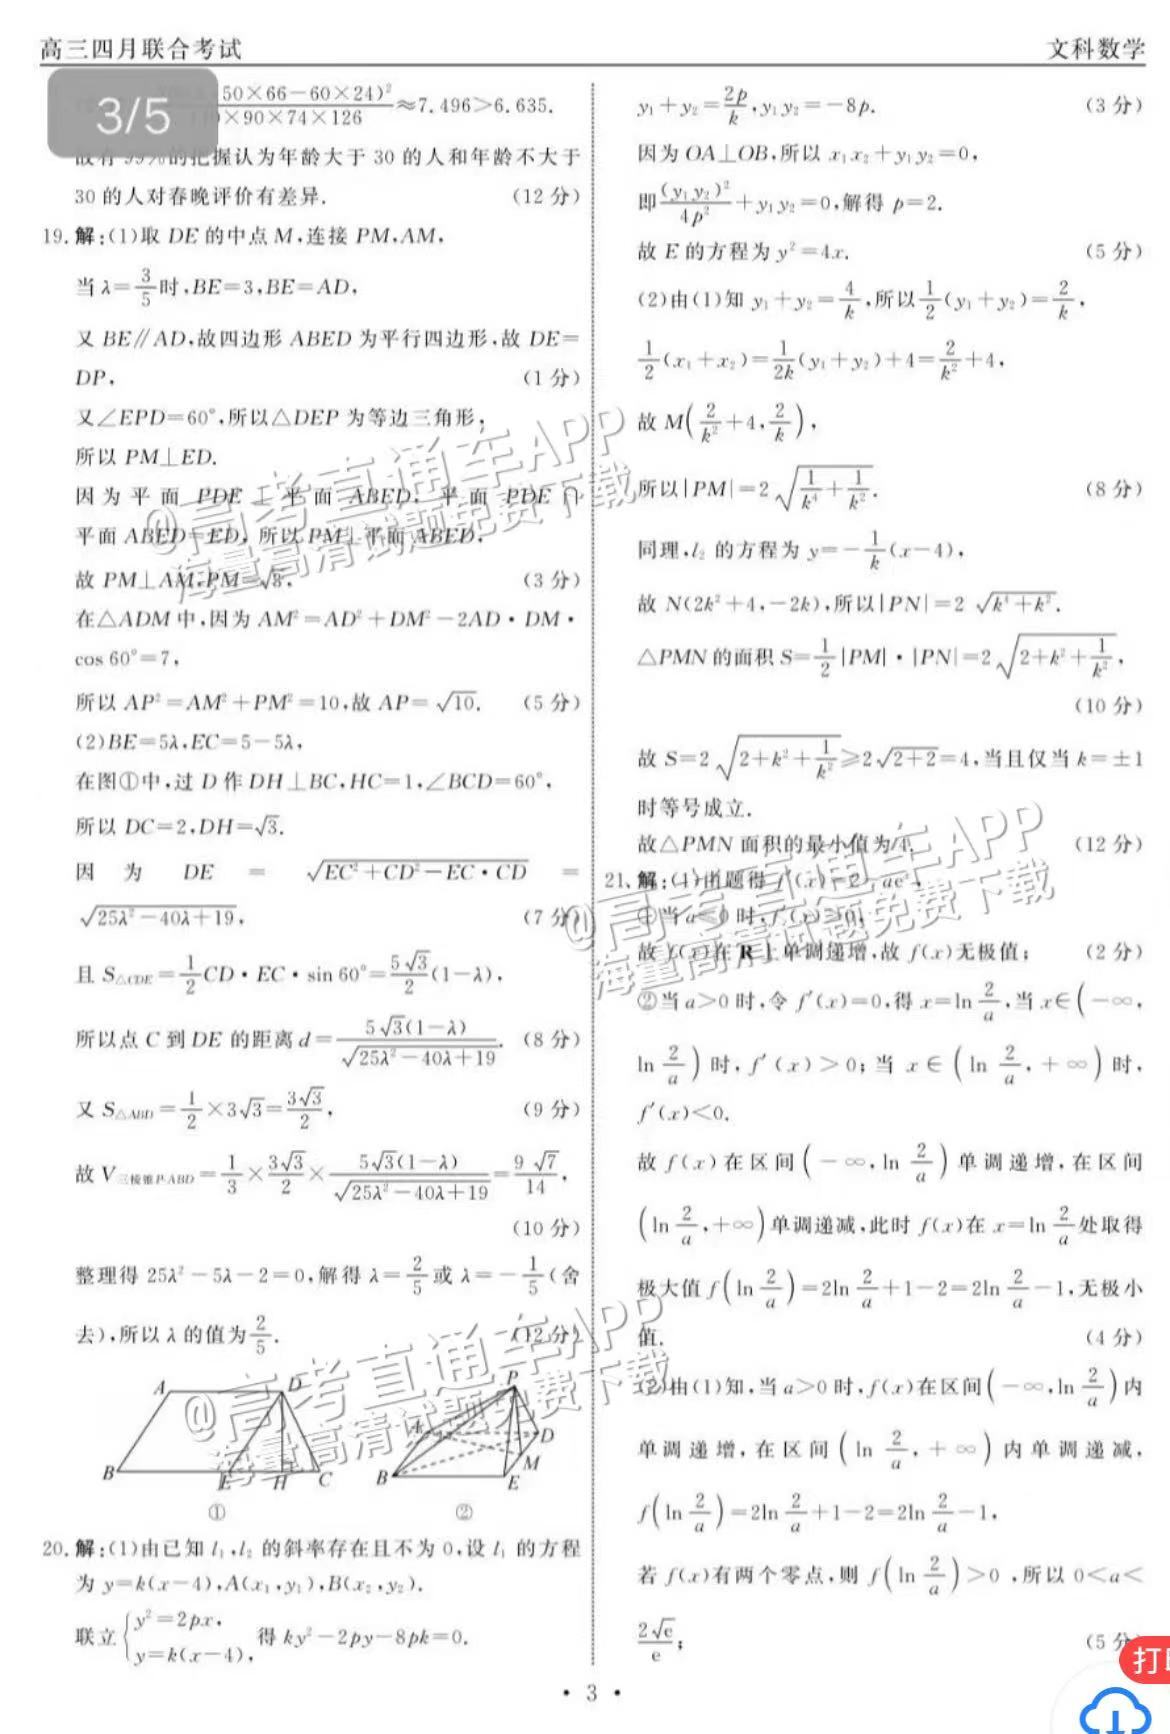 高三四月联合考试
文科数学
3/5
50×66-60×24)²
×90×74×126
≈7.496>6.635.
故有99%的把握认为年龄大于 30 的人和年龄不大于
30 的人对春晚评价有差异. (12 分)
19. 解:(1)取 DE 的中点 M,连接 PM,AM,
当 λ=3/5 时,BE=3,BE=AD,
又 BE∥AD,故四边形 ABED 为平行四边形,故 DE=
DP, (1 分)
又∠EPD=60°,所以△DEP 为等边三角形,
所以 PM⊥ED.
因为平面 PDE⊥平面 ABED,平面 PDE∩
平面 ABED=ED,所以 PM⊥平面 ABED,
故 PM⊥AM,PM=√8. (3 分)
在△ADM 中,因为 AM²=AD²+DM²-2AD·DM·
cos 60°=7,
所以 AP²=AM²+PM²=10,故 AP=√10. (5 分)
(2)BE=5λ,EC=5-5λ,
在图①中,过 D 作 DH⊥BC,HC=1,∠BCD=60°,
所以 DC=2,DH=√3.
因为 DE = √(EC²+CD²-EC·CD) =
√(25λ²-40λ+19), (7 分)
且 S△CDE=1/2 CD·EC·sin 60°=5√3/2 (1-λ),
所以点 C 到 DE 的距离 d=5√3(1-λ)/√(25λ²-40λ+19). (8 分)
又 S△ABD=1/2×3√3=3√3/2, (9 分)
故 V三棱锥P-ABD=1/3×3√3/2×5√3(1-λ)/√(25λ²-40λ+19)=9√7/14,
(10 分)
整理得 25λ²-5λ-2=0,解得 λ=2/5 或 λ=-1/5(舍
去),所以 λ 的值为 2/5. (12 分)
A D
B E H C
①
P
A D
M
B E
②
20. 解:(1)由已知 l₁,l₂ 的斜率存在且不为 0,设 l₁ 的方程
为 y=k(x-4),A(x₁,y₁),B(x₂,y₂).
联立{y²=2px,
y=k(x-4), 得 ky²-2py-8pk=0.
y₁+y₂=2p/k,y₁y₂=-8p. (3 分)
因为 OA⊥OB,所以 x₁x₂+y₁y₂=0,
即(y₁y₂)²/4p²+y₁y₂=0,解得 p=2.
故 E 的方程为 y²=4x. (5 分)
(2)由(1)知 y₁+y₂=4/k,所以1/2(y₁+y₂)=2/k,
1/2(x₁+x₂)=1/2k(y₁+y₂)+4=2/k²+4,
故 M(2/k²+4,2/k),
所以|PM|=2√(1/k⁴+1/k²). (8 分)
同理,l₂ 的方程为 y=-1/k(x-4),
故 N(2k²+4,-2k),所以|PN|=2√(k⁴+k²).
△PMN 的面积 S=1/2|PM|·|PN|=2√(2+k²+1/k²),
(10 分)
故 S=2√(2+k²+1/k²)≥2√(2+2)=4,当且仅当 k=±1
时等号成立.
故△PMN 面积的最小值为 4. (12 分)
21. 解:(1)由题得 f′(x)=2-aeˣ,
①当 a≤0 时,f′(x)>0,
故 f(x)在 R 上单调递增,故 f(x)无极值; (2 分)
②当 a>0 时,令 f′(x)=0,得 x=ln 2/a,当 x∈(-∞,
ln 2/a)时,f′(x)>0;当 x∈(ln 2/a,+∞)时,
f′(x)<0.
故 f(x)在区间(-∞,ln 2/a)单调递增,在区间
(ln 2/a,+∞)单调递减,此时 f(x)在 x=ln 2/a 处取得
极大值 f(ln 2/a)=2ln 2/a+1-2=2ln 2/a-1,无极小
值. (4 分)
(2)由(1)知,当 a>0 时,f(x)在区间(-∞,ln 2/a)内
单调递增,在区间(ln 2/a,+∞)内单调递减,
f(ln 2/a)=2ln 2/a+1-2=2ln 2/a-1,
若 f(x)有两个零点,则 f(ln 2/a)>0,所以 0<a<
2√e/e; (5 分
· 3 ·
@高考直通车APP
海量高清试题免费下载
@高考直通车APP
海量高清试题免费下载
@高考直通车APP
海量高清试题免费下载